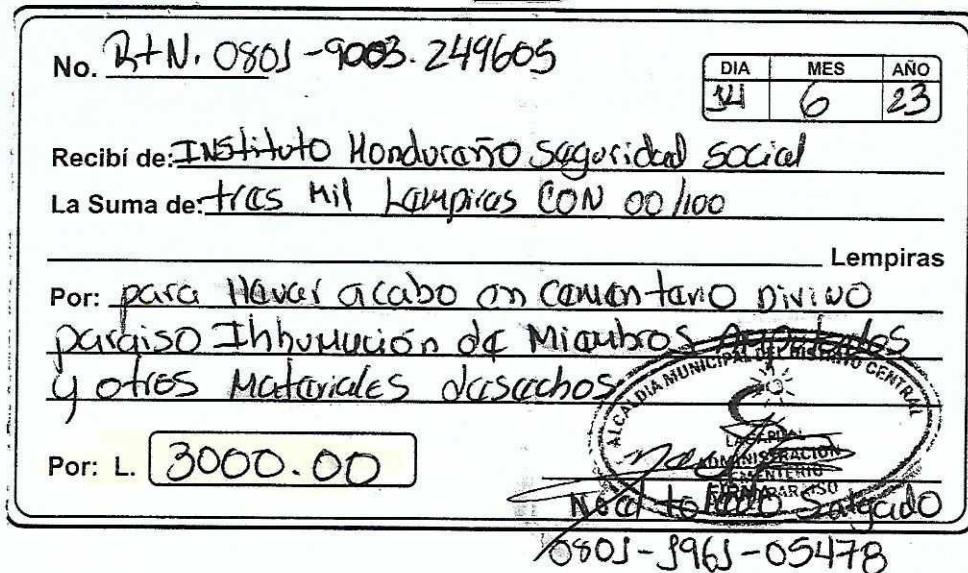 No. RtN. 0801-9003.249605
DIA MES AÑO
14 6 23
Recibí de: INStituto Honduraño Saguridad social
La Suma de: tras Mil Lampiras CON 00/100
Lempiras
Por: para Havar acabo an camantario Divino
paraiso Inhumución da Miambros Amputados
y otros Matariales dasachos
ALCALDIA MUNICIPAL DEL DISTRITO CENTRAL
LA CAPITAL
ADMINISTRACION
CEMENTERIO
PARAISO
FIRMA
Por: L. 3000.00
Noal toledo Salgado
0801-1961-05478